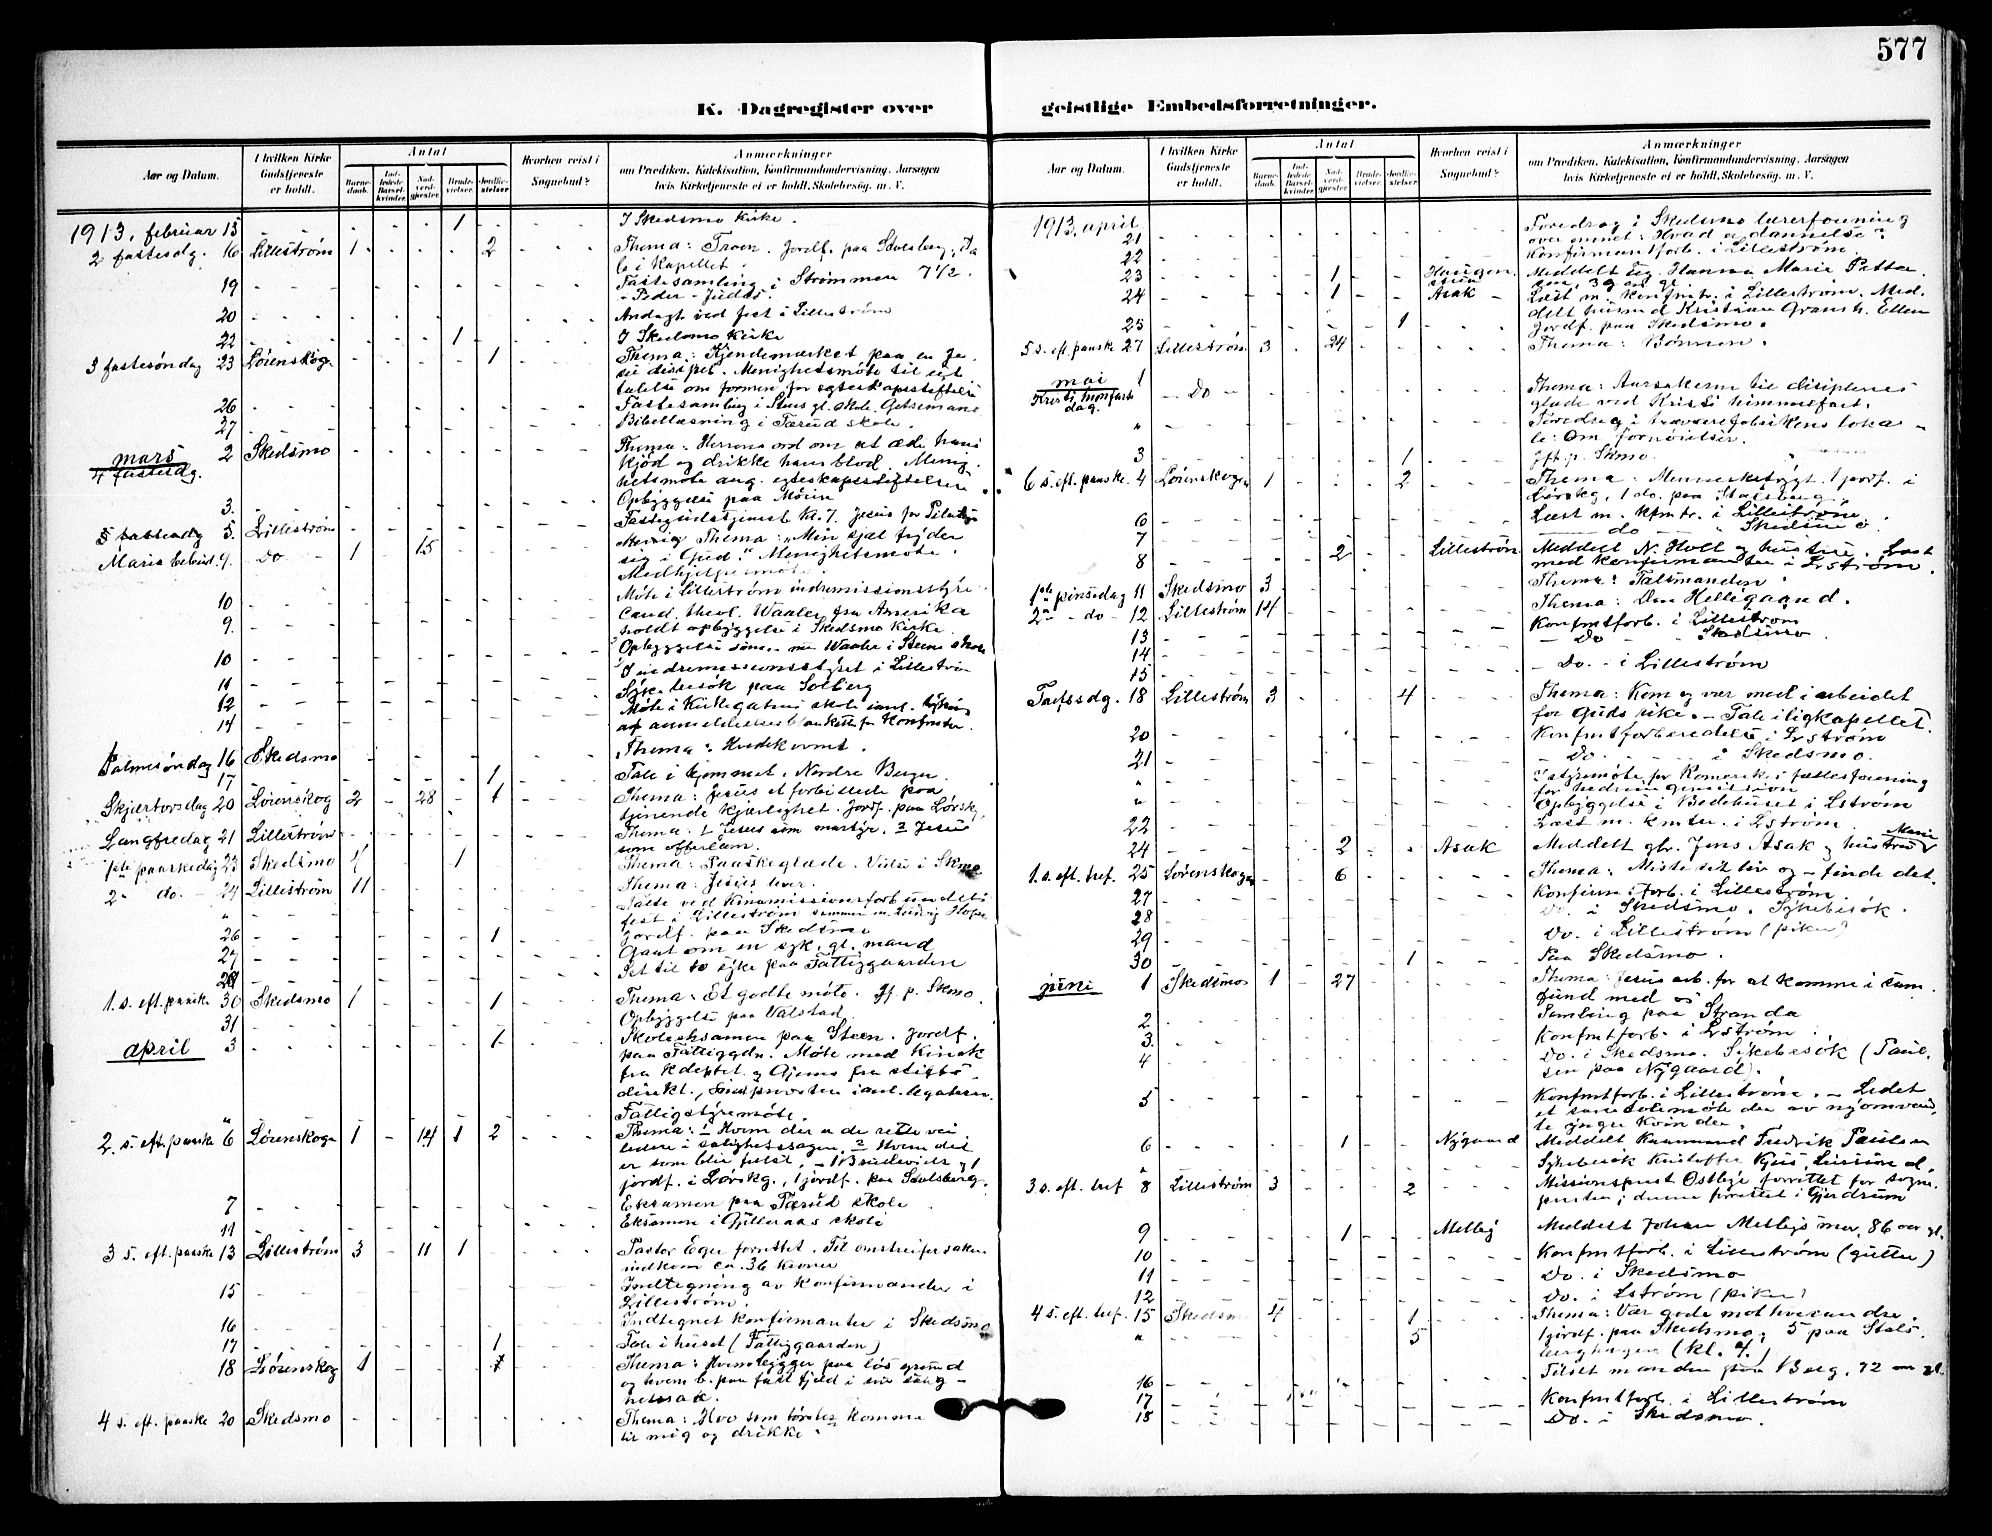 577
K. Dagregister over geistlige Embedsforretninger.
Aar og Datum.
I hvilken Kirke Gudstjeneste er holdt.
Antal
Barnedaab.
Indledede Barselkvinder.
Nadverdgjester.
Brudevielser.
Jordfæstelser.
Hvorhen reist i Sognebud?
Anmærkninger
om Prædiken, Katekisation, Konfirmandundervisning, Aarsagen
hvis Kirketjeneste ei er holdt, Skolebesøg, m. V.
1913. februar 15 1 I Skedsmo kirke.
2 fastesdg. 16 Lillestrøm 1 2 Thema: Troen. Jordf. paa Stalsberg. Ta
le i kapellet.
19 Fastesamling i Strømmen 7 1/2.
- Peder - Judas.
20 Andagt ved fest i Lillestrøm
22 1 I Skedsmo kirke
3 fastesøndag 23 Lørenskog 1 Thema: Kjendemærket paa en Je
su discipel. Menighetsmøte til ut
talelse om formen for egteskapsstiftelse
26 Fastesamling i Stens gl. skole. Getsemane
27 Bibellæsning i Færud skole.
mars 2 Skedsmo Thema: Herrens ord om at æde hans
4 fastesdg. kjød og drikke hans blod. Menig
hetsmøte ang. egteskapsstiftelsen
3. Opbyggelse paa Moen
5. Lillestrøm Fastegudstjeneste kl. 7. Jesus for Pilatus
5 fastesdg
Maria bebud. 9. Do 1 15 Thema: "Min sjæl fryder
sig i Gud." Menighetsmøte.
Medhjelpermøte.
10 Møte i Lillestrøm indremissionsstyre
9. Cand. theol. Waaler fra Amerika
holdt opbyggelse i Skedsmo kirke.
10 Opbyggelse sam. m. Waaler i Steens skole
I indremissionsstyret i Lillestrøm
11 Sykebesøk paa Solberg
12 Møte i Kirkegatens skole
14
Palmesøndag 16 Skedsmo Thema: Hvedekornet.
17 1 Tale i hjemmet. Nordre Berger
Skjærtorsdag 20 Lørenskog 2 28 1 Thema: Jesus et forbillede paa
tjenende kjærlighet. Jordf. paa Lørsk.
Langfredag 21 Lillestrøm Thema: 1 Jesus som martyr. 2 Jesus
som offerlam.
1ste paaskedag 23 Skedsmo 4 1 Thema: Paaskeglæde. Vielse i Skmo
2 " do. - 24 Lillestrøm 11 Thema: Jesus lever.
" Talte ved Kinamissionsforbundets
fest i Lillestrøm sammen m. Ludvig Hope
26 1 Jordf. paa Skedsmo
27 om en syk, gl. mand
Set til to syke paa Fattiggaarden
1. s. eft. paaske 30 Skedsmo 1 1 Thema: Et godt møte. Jf. p. Skmo.
31 Opbyggelse paa Valstad.
april 3 1 Skoleeksamen paa Steen. Jordf.
paa Fattiggdn. Møte med Kinck
fra K.deptet og Gjems fra stifts-
direkt.,
" Fattigstyremøte.
2. s. eft. paaske 6 Lørenskog 1 14 1 2 Thema: 1 Hvem der er de rette vei
ledere i salighetssagen. 2 Hvem det
er som blir frelst. - 1 Brudevielse og 1
jordf. i Lørskg., 1 jordf. paa Stalsberg.
7 Eksamen paa Færud skole
11 Eksamen i Gjelleraas skole
3 s. eft. paaske 13 Lillestrøm 3 11 1 Pastor Eger forrettet. Til omstreifersaken
indkom ca. 36 kroner
15 Indtegning av konfirmander i
Lillestrøm.
16 Indtegnet konfirmanter i Skedsmo
17 1 Tale i huset (Fattiggaarden)
18 Lørenskog 1 1 Thema: Hvem bygger paa løs grund
og hvem b. paa fast fjeld i sin salig-
hetssak.
4 s. eft. paaske 20 Skedsmo Thema: Hvo som tørster komme
til mig og drikke.
1913. april
21 Foredrag i Skedsmo lærerforening
over emnet: Hvad er dannelse?
22 Konfirmantforb. i Lillestrøm
23 1 Haugenstuen Meddelt Teg. Hanna Marie Petter
sen, 39 aar gl.
24 1 Asak Læst m. konfmtr. i Lillestrøm. Med
delt husmd Kristian Gransh. Ellen
25 1 Jordf. paa Skedsmo.
5 s. eft. paaske 27 Lillestrøm 3 24 Thema: Bønnen.
mai 1 Do Thema: Aarsakerne til disiplenes
Kristi himmfarts dag. glæde ved Kristi himmelfart.
" Foredrag i trævarefabrikkens loka
le: Om fornøielser.
3 1 Jft. p. Skmo.
6 s. eft. paaske. 4 Lørenskogen 1 2 Thema: Menneskefrygt. 1 jordf. i
Lørskg., 1 do. paa Stalsberg.
6 Læst m. kfmtr. i Lillestrøm
7 do " Skedsmo
8 2 Lillestrøm Meddelt N. Holt og hustru. Læst
med konfirmanter i Lstrøm.
1ste pinsedag 11 Skedsmo 3 Thema: Talsmanden.
2 " - do - 12 Lillestrøm 14 Thema: Den Helligaand.
13 Konfmtforb. i Lillestrøm
14 - Do " Skedsmo
15 - Do. - i Lillestrøm
Trefsdg. 18 Lillestrøm 3 4 Thema: Kom og vær med i arbeidet
for Guds rike. - Tale i ligkapellet.
20 Konfmtforberedelse i Lstrøm
21 Do. i Skedsmo.
" I styremøte for Romerikes fællesforening
for indremission
" Opbyggelse i Bedehuset i Lstrøm
22 Læst m. kmtr. i Lstrøm
24 2 Asak Meddelt gbr. Jens Asak og hustru Marie
1. s. eft. tref. 25 Lørenskogen 6 Thema: Miste sit liv og - finde det.
27 Konfirm.forb. i Lillestrøm
28 Do. i Skedsmo. Sykebesøk.
29 Do. i Lillestrøm (piker)
30 1 Paa Skedsmo.
juni 1 Skedsmo 1 27 Thema: Jesus arb. for at komme i sam
fund med os
2 Samling paa Stranda
3. Konfmtforb. i Lstrøm.
4 Do. i Skedsmo. Sykebesøk (Paul
sen paa Nygaard).
5 Konfmtforb. i Lillestrøm. - Ledet
et samtalemøte der av nyomvend
te yngre kvinder.
6 1 Nygaard Meddelt Kaarmand Fredrik Paulsen
" Sykebesøk Kristoffer Kjus,
3 s. eft. tref 8 Lillestrøm 3 2 Missionsprest Østbye forrettet for sogne
presten; denne forrettet i Gjerdrum
9 1 Melleg Meddelt Johan Mellegs mor, 86 aar gl.
10 Konfmtforb. i Lillestrøm (gutter)
11 Do. i Skedsmo
12 Do. i Lstrøm (piker)
4 s. eft. tref. 15 Skedsm 4 1 Thema: Vær gode mot hverandre.
" 5 1 jordf. paa Skedsmo, 5 paa Stals
berghagen (kl. 4.)
16 manden paa Berg, 72 aar gl.
17 Konfmtforb. i Lillestrøm
18 Do. i Skedsmo.